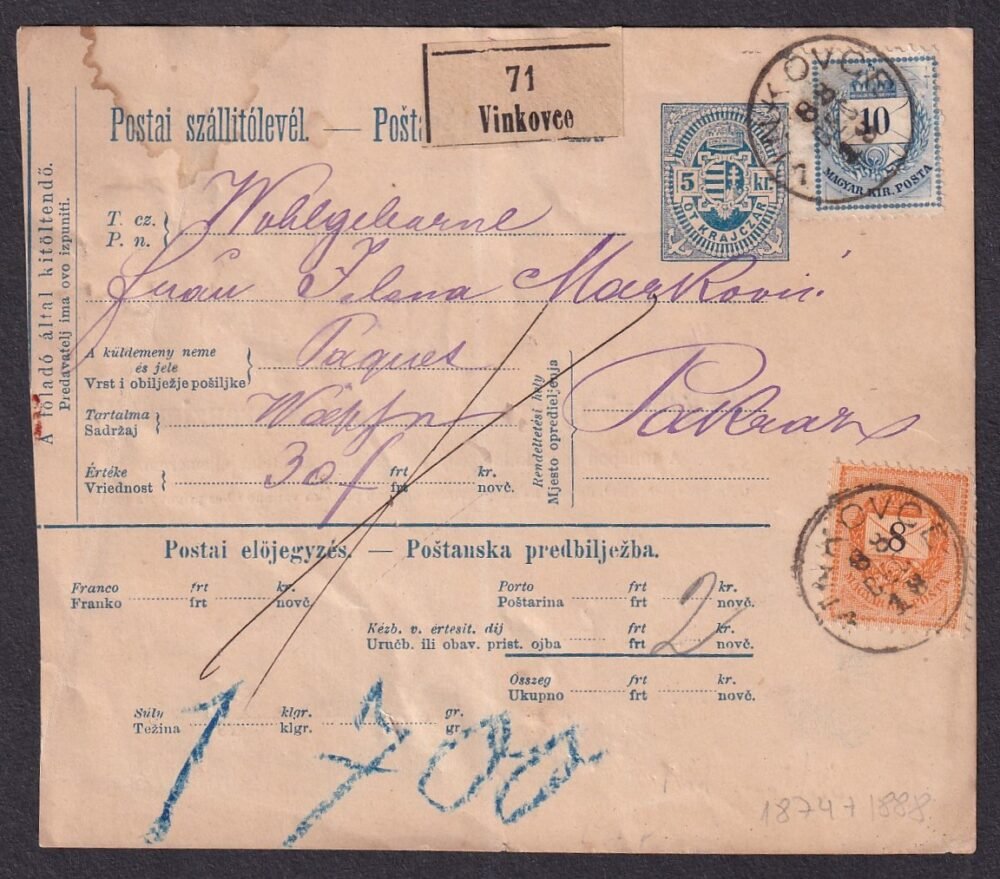 71
Vinkovce
Postai szállitólevél. — Pošta
5 kr.
ÖT KRAJCZÁR
10
MAGYAR KIR. POSTA
VINKOVCE
T. cz.
P. n.
Wohlgeborne
Frau Jelena Marković
A küldemeny neme
és jele
Vrst i obilježje pošiljke
Paquet
Tartalma
Sadržaj
Értéke frt kr.
Vriednost frt novč.
30 f
Rendeltetési hely
Mjesto opredieljenja
Pakrac
A föladó által kitöltendő.
Predavatelj ima ovo izpuniti.
8
VINKOVCE
Postai előjegyzés. — Poštanska predbilježba.
Franco frt kr.
Franko frt novč.
Porto frt kr.
Poštarina frt novč.
Kézb. v. értesit. díj frt kr.
Uručb. ili obav. prist. ojba frt novč.
2
Összeg frt kr.
Ukupno frt novč.
Súly klgr. gr.
Težina klgr. gr.
1 700
1874+1888